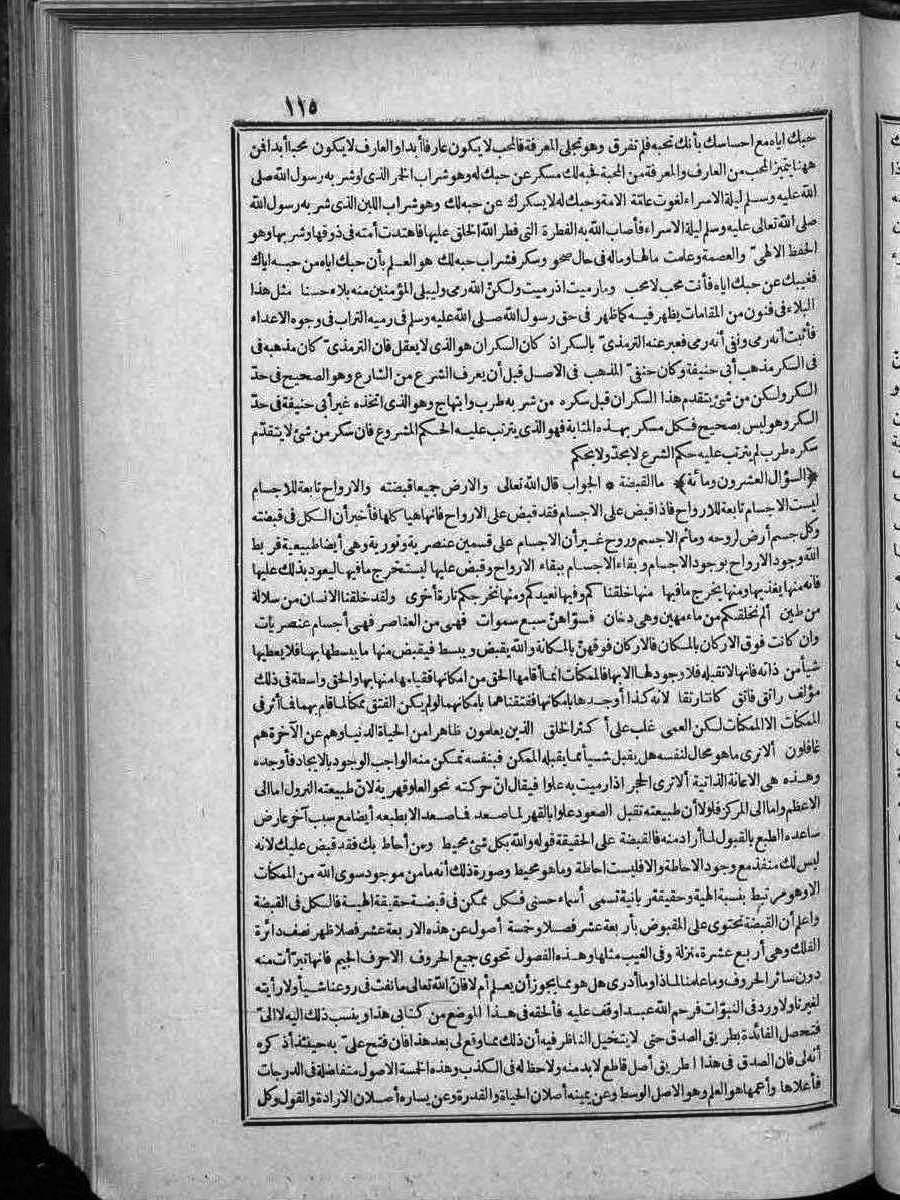 ١١٥
حبك اياه مع احساسك بأنك تحبه فلم تفرق وهو تجلى المعرفة فالمحب لا يكون عارفا أبدا والعارف لا يكون محبا أبدا فمن
ههنا يتميز المحب من العارف والمعرفة من المحبة فحبه لك مسكر عن حبك له وهو شراب الخمر الذى لو شر به رسول الله صلى
الله عليه وسلم ليلة الاسراء لغوت عامّة الامة وحبك له لا يسكرك عن حبه لك وهو شراب اللبن الذى شر به رسول الله
صلى الله تعالى عليه وسلم ليلة الاسراء فأصاب الله به الفطرة التى فطر الله الخلق عليها فاهتدت أمته فى ذوقها وشر بها وهو
الحفظ الالهىّ والعصمة وعلمت مالها وماله فى حال صحو وسكر فشراب حبه لك هو العلم بأن حبك اياه من حبه اياك
فغيبك عن حبك اياه فأنت محب لا محب وما رميت اذ رميت ولكنّ الله رمى وليبلى المؤمنين منه بلاء حسنا مثل هذا
البلاء فى فنون من المقامات يظهر فيه كما ظهر فى حق رسول الله صلى الله عليه وسلم فى رميه التراب فى وجوه الاعداء
فأثبت أنه رمى ونفى أنه رمى فعبر عنه الترمذىّ بالسكر اذ كان السكران هو الذى لا يعقل فان الترمذىّ كان مذهبه فى
فى السكر مذهب أبى حنيفة وكان حنفىّ المذهب فى الاصل قبل أن يعرف الشرع من الشارع وهو الصحيح فى حدّ
السكر ولكن من شئ يتقدم هذا السكران قبل سكره من شر به طرب وابتهاج وهو الذى اتخذه غير أبى حنيفة فى حدّ
السكر وهو ليس بصحيح فكل مسكر بهذه المثابة فهو الذى يترتب عليه الحكم المشروع فان سكر من شئ لا يتقدّم
سكره طرب لم يترتب عليه حكم الشرع لا بحدّ ولا بحكم
﴿السؤال العشرون ومائة﴾ ما القبضة * الجواب قال الله تعالى والارض جميعا قبضته والارواح تابعة للاجسام
ليست الاجسام تابعة للارواح فاذا قبض على الاجسام فقد قبض على الارواح فانها هياكلها فأخبر أن الكل فى قبضته
وكل جسم أرض لروحه وما ثم الا جسم وروح غير أن الاجسام على قسمين عنصرية ونورية وهى أيضا طبيعية فربط
الله وجود الارواح بوجود الاجسام وبقاء الاجسام ببقاء الارواح وقبض عليها ليستخرج ما فيها ليعود بذلك عليها
فانه منها يغذيها ومنها يخرج ما فيها منها خلقناكم وفيها نعيدكم ومنها نخرجكم تارة أخرى ولقد خلقنا الانسان من سلالة
من طين ألم نخلقكم من ماء مهين وهى دخان فسوّاهنّ سبع سموات فهى من العناصر فهى أجسام عنصريات
وان كانت فوق الاركان بالمكان فالاركان فوقهنّ بالمكانة والله يقبض ويبسط فيقبض منها ما يبسطها بها فلا يعطيها
شيأ من ذاته فانها لا تقبله فلا وجود لها الا بها فالممكنات انما أقامها الحق من امكانها فقيامها منها بها والحق واسطة فى ذلك
مؤلف راتق فاتق كانتا رتقا لانه كذا أوجدها بامكانها ففتقناهما بامكانهما لو لم يكن الفتق ممكنا لما قام بهما فما أثر فى
الممكنات الا الممكنات لكن العمى غلب على أكثر الخلق الذين يعلمون ظاهرا من الحياة الدنيا وهم عن الآخرة هم
غافلون ألا ترى ما هو محال لنفسه هل يقبل شيأ مما يقبله الممكن فبنفسه تمكن منه الواجب الوجود بالايجاد فأوجده
وهذه هى الاعانة الذاتية ألا ترى الحجر اذا رميت به علوا فيقال انّ حركته نحو العلو قهرية لانّ طبيعته النزول اما الى
الاعظم واما الى المركز فلولا أن طبيعته تقبل الصعود علوا بالقهر لما صعد فما صعد الا بطبعه أيضا مع سبب آخر عارض
ساعده الطبع بالقبول لما أراد منه فالقبضة على الحقيقة قوله والله بكل شئ محيط ومن أحاط بك فقد قبض عليك لانه
ليس لك منفذ مع وجود الاحاطة والا فليست احاطة وما هو محيط وصورة ذلك أنه ما من موجود سوى الله من الممكنات
الا وهو مرتبط بنسبة الهية وحقيقة ربانية تسمى أسماء حسنى فكل ممكن فى قبضة حقيقة الهية فالكل فى القبضة
واعلم أن القبضة تحتوى على المقبوض بأربعة عشر فصلا وخمسة أصول عن هذه الاربعة عشر فصلا ظهر نصف دائرة
الفلك وهى أربع عشرة منزلة وفى الغيب مثلها وهذه الفصول تحوى جميع الحروف الا حرف الجيم فانها تبرّأت منه
دون سائر الحروف وما علمنا لماذا وما أدرى هل هو مما يجوز أن يعلم أم لا فانّ الله تعالى ما نفث فى روعنا شيأ ولا رأيته
لغيرنا ولا ورد فى النبوّات فرحم الله عبدا وقف عليه فألحقه فى هذا الموضع من كتابى هذا وينسب ذلك اليه لا الىّ
فتحصل الفائدة بطريق الصدق حتى لا يتخيل الناظر فيه أن ذلك مما وقع لى بعد هذا فان فتح علىّ به حينئذ أذكره
أنه لى فان الصدق فى هذا الطريق أصل قاطع لا بد منه ولا حظ له فى الكذب وهذه الخمسة الاصول متفاضلة فى الدرجات
فأعلاها وأعمها هو العلم وهو الاصل الوسط وعن يمينه أصلان الحياة والقدرة وعن يساره أصلان الارادة والقول وكل